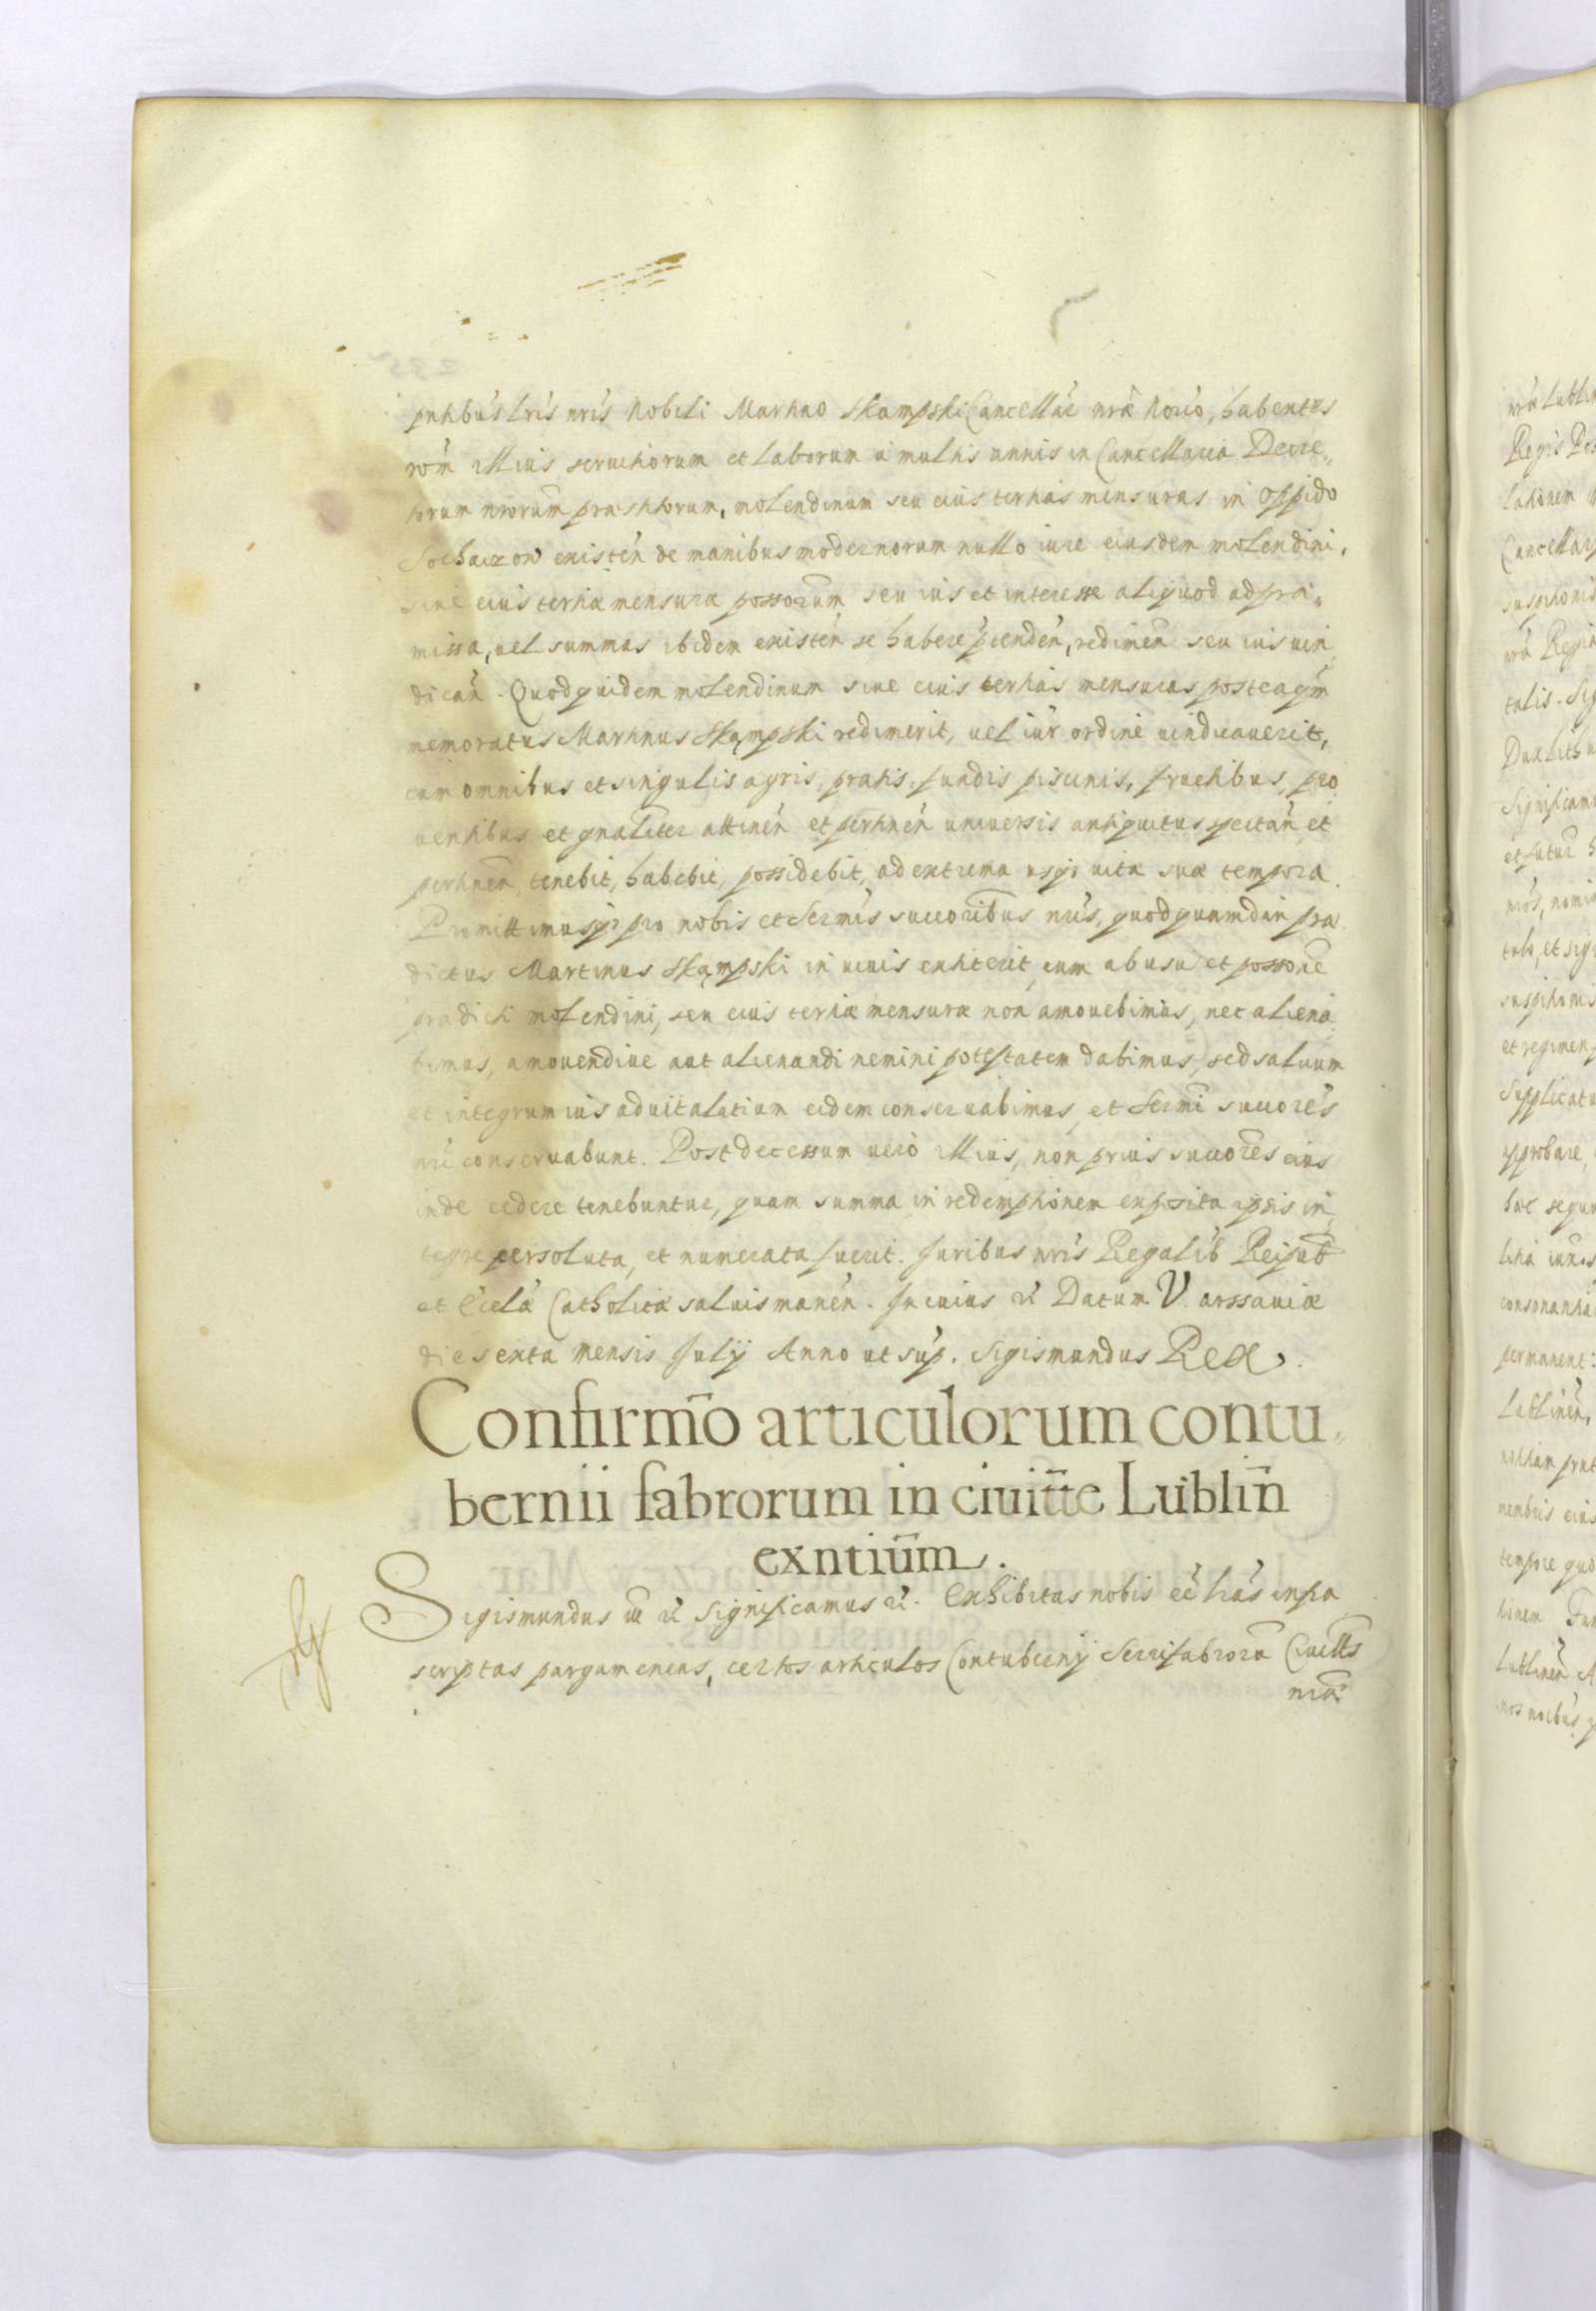 pntibus lris nris Nobili Martino Skampski Cancellar nræ Norio, habentes
rom illius seruitiorum et laborum a multis annis in Cancellaria Decre„
torum nrorum præstitorum, molendinum seu eius tertias mensuras in oppido
Sochaczow existen de manibus modernorum nullo iure eiusdem molendini,
siue eius tertiæ mensuræ possorum seu ius et interesse aliquod ad præ„
missa, uel summas ibidem existen se habere ptenden, redimen seu iuis uin
dican. Quodquidem molendinum siue eius tertias mensuras posteaqm
memoratus Martinus Skąmpski redimerit, uel iur ordine uindicauerit,
cum omnibus et singulis agris, pratis, fundis piscinis, fructibus, pro
uentibus et gnaliter attinen et pertinen uniuersis antiquitus spectan et
pertinen, tenebit, habebit, possidebit, ad extrema usq uitæ suæ tempora.
Promittimusq pro nobis et Sermis succoribus nris, quod quamdiu præ
dictus Martinus Skąmpski in uiuis extiterit, eum ab usu et possone
prædicti molendini, seu eius tertiæ mensuræ non amouebimus, nec aliena
bimus, amouendiue aut alienandi nemini potestatem dabimus, sed saluum
et integrum ius aduitalitium eidem conseruabimus, et Sermi succores
nri conseruabunt. Post decessum uero illius, non prius succores eius
inde cedere tenebuntur, quam summa in redemptionem exposita ipsis in
tegre persoluta, et numerata fuerit. Iuribus nris Regalib Reipub
et Eccla Catholicæ saluis manen. In cuius rei Datum Varssauiæ
die sexta mensis Iulij Anno ut sup. Sigismundus Rex.
Confirmo articulorum contu„
bernii fabrorum in ciuitte Lublin
exntium.
Sigismundus III rc Significamus rc. Exhibitas nobis ee lras infra
scriptas pargameneas, certos articulos Contubernij Serrifabroru Ciuitts
nræ